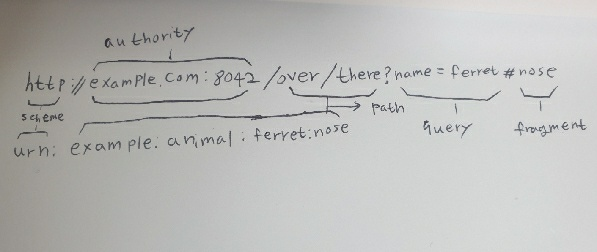 authority
http://example.com:8042/over/there?name=ferret#nose
scheme
path
query
fragment
urn: example:animal:ferret:nose